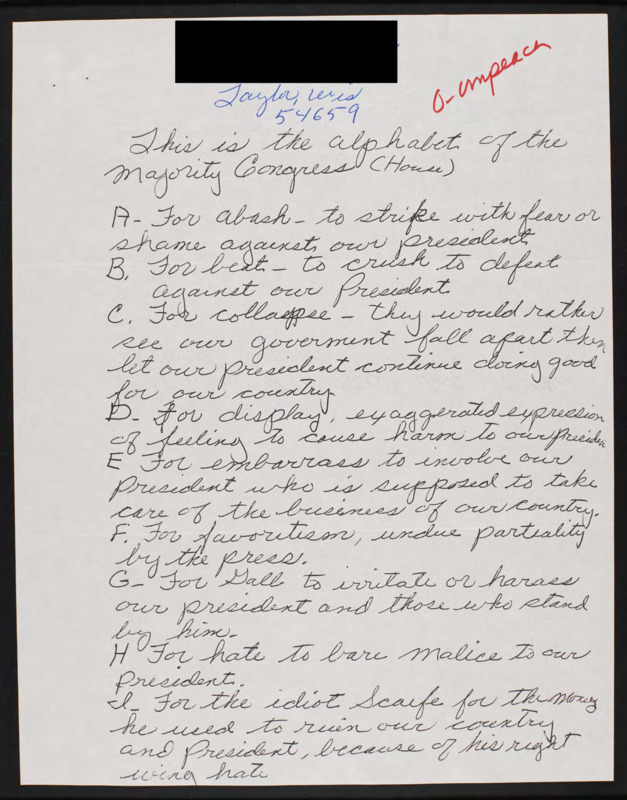 Taylor, Wis
54659
O-impeach
This is the alphabet of the
Majority Congress (House)
A- For abash - to strike with fear or
shame against our president
B. For beat - to crush to defeat
against our President
C. For collapse - they would rather
see our goverment fall apart then
let our president continue doing good
for our country
D- For display, exaggerated expression
of feeling to cause harm to our president
E For embarrass to involve our
President who is supposed to take
care of the business of our country.
F. For favoritism, undue partiality
by the press.
G- For Gall to irritate or harass
our president and those who stand
by him-
H For hate to bare malice to our
President.
I- For the idiot Scaife for the money
he used to ruin our country
and President, because of his right
wing hate